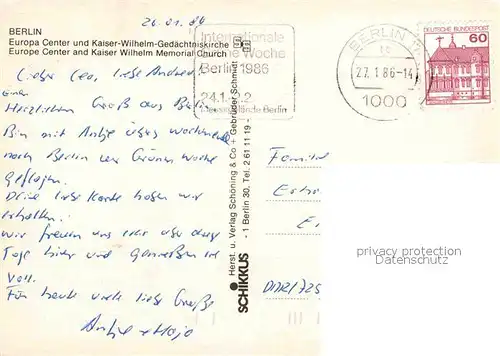 26.01.86
BERLIN
Europa Center und Kaiser-Wilhelm-Gedächtniskirche
Europe Center and Kaiser Wilhelm Memorial Church
Liebe Lea, liebe Andrea!
einen
Herzlichen Gruß aus Berlin.
Bin mit Antje übers Wochenende
nach Berlin zur Grünen Woche
geflogen.
Deine liebe Karte haben wir
erhalten.
Wir freuen uns über
Tage hier und genießen sie
voll.
Für heute viele liebe Grüße
Antje + Hajo
Internationale
Grüne Woche
Berlin 1986
24.1.-2.2.
Messegelände Berlin
BERLIN 12
27.1.86-14
1000
DEUTSCHE BUNDESPOST
60
SCHIKKUS
Herst. u. Verlag Schöning & Co + Gebrüder Schmidt
- 1 Berlin 30, Tel. 2 61 11 19 -
Familie
DDR/725
privacy protection
Datenschutz